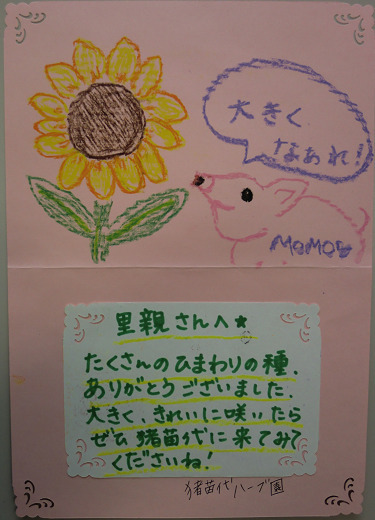 大きく
なぁれ!
MOMOE
里親さんへ★
たくさんのひまわりの種、
ありがとうございました。
大きく、きれいに咲いたら
ぜひ猪苗代に来てみて
くださいね!
猪苗代ハーブ園